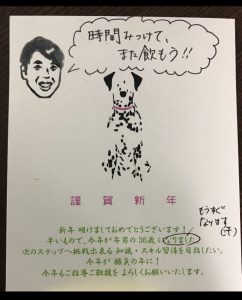 時間みつけて、
また飲もう!!
謹賀新年
新年 明けましておめでとうございます!
早いもので、今年が年男の36歳になりました
もうすぐ
なります
(汗)
次のステップへ挑戦出来る知識・スキル習得を目指したい。
今年が勝負の年に!
今年もご指導ご鞭撻をよろしくお願いいたします。